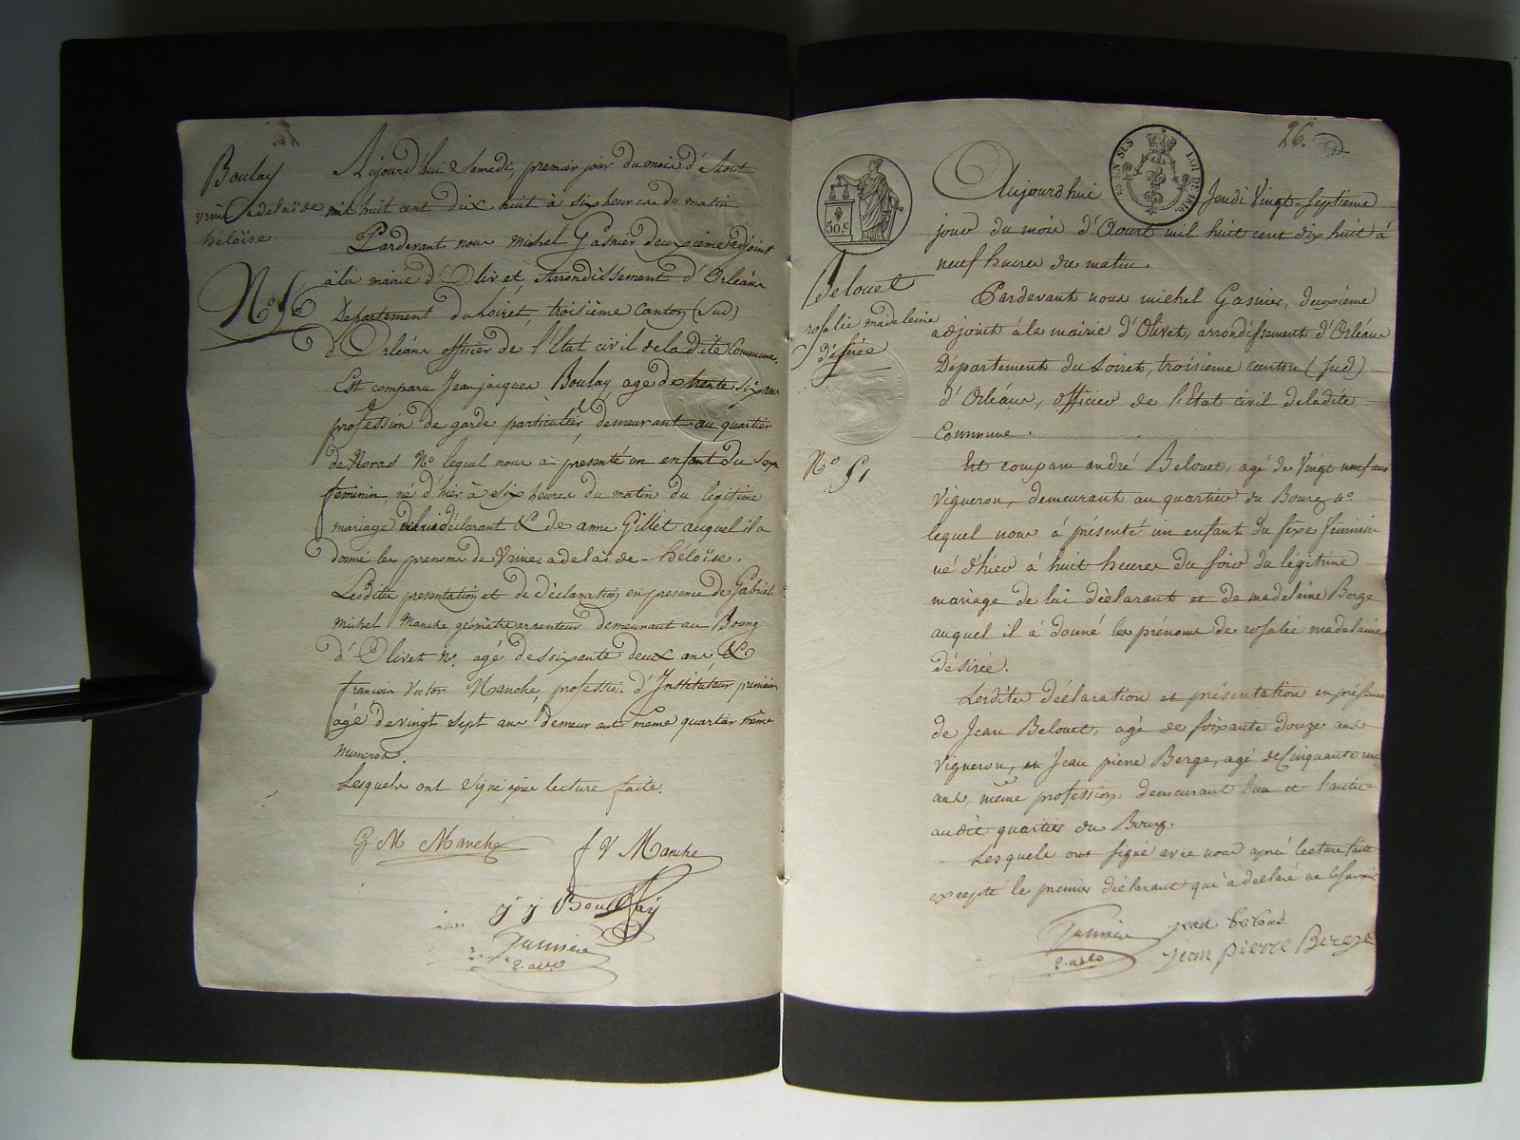 Boulay
adelaïde
héloïse
Aujourd'hui Samedi, premier jour du mois d'Aout
mil huit cent dix huit à six heures du matin
Pardevant nous Michel Gasnier deuxieme adjoint
à la mairie d'Olivet, Arrondissement d'Orléans
Departement du Loiret, troisième Canton (Sud)
d'Orléans officier de l'Etat civil de la dite Commune.
Est comparu Jean jacques Boulay age de trente six ans
profession de garde particulier, demeurant au quartier
de No lequel nous a présenté un enfant du sexe
feminin, né d'hier à six heures du matin du légitime
mariage declarant & de anne Gillet auquel il a
donné les prenoms de adelaïde - héloïse.
Lesdites presentation et de déclaration en presence de Gabriel
Michel Manche géometre arpenteur demeurant au Bourg
d'Olivet No. agé de soixante deux ans &
francois Victor Manche, profession d'Instituteur primaire
agé de vingt sept ans demeurant même quartier même
numero.
Lesquels ont signé après lecture faite.
G M Manche
f V Manche
j j Boullay
Gasnier
2. adjo
26.
50.c
Aujourdhui Jeudi Vingt-Septieme
jour du mois d'Aoust mil huit cent dix huit à
neuf heures du matin.
Belouet
rosalie madeleine
désirée
No 51
Pardevant nous michel Gasnier, deuxième
adjoint à la mairie d'Olivet, arrondissement d'Orléans
Département du Loiret, troisieme canton (Sud)
d'Orléans, officier de l'Etat civil de ladite
Commune.
Est comparu andré Belouet, agé de Vingt neuf ans
Vigneron, demeurant au quartier du Bourg no
lequel nous à présenté un enfant du sexe féminin
né d'hier à huit heures du soir du légitime
mariage de lui déclarant et de madeleine Berge
auquel il à donné les prénoms de rosalie madelaine
désirée.
Lesdites déclaration et présentation en présence
de Jean Belouet, agé de soixante douze ans
Vigneron, et Jean pierre Berge, agé de Cinquante un
ans, même profession demeurant l'un et l'autre
audit quartier du Bourg.
Lesquels ont signé avec nous après lecture faite
excepté le premier déclarant qui a déclaré ne le savoir
Gasnier
2. adjo
jean belouet
jean pierre Berge